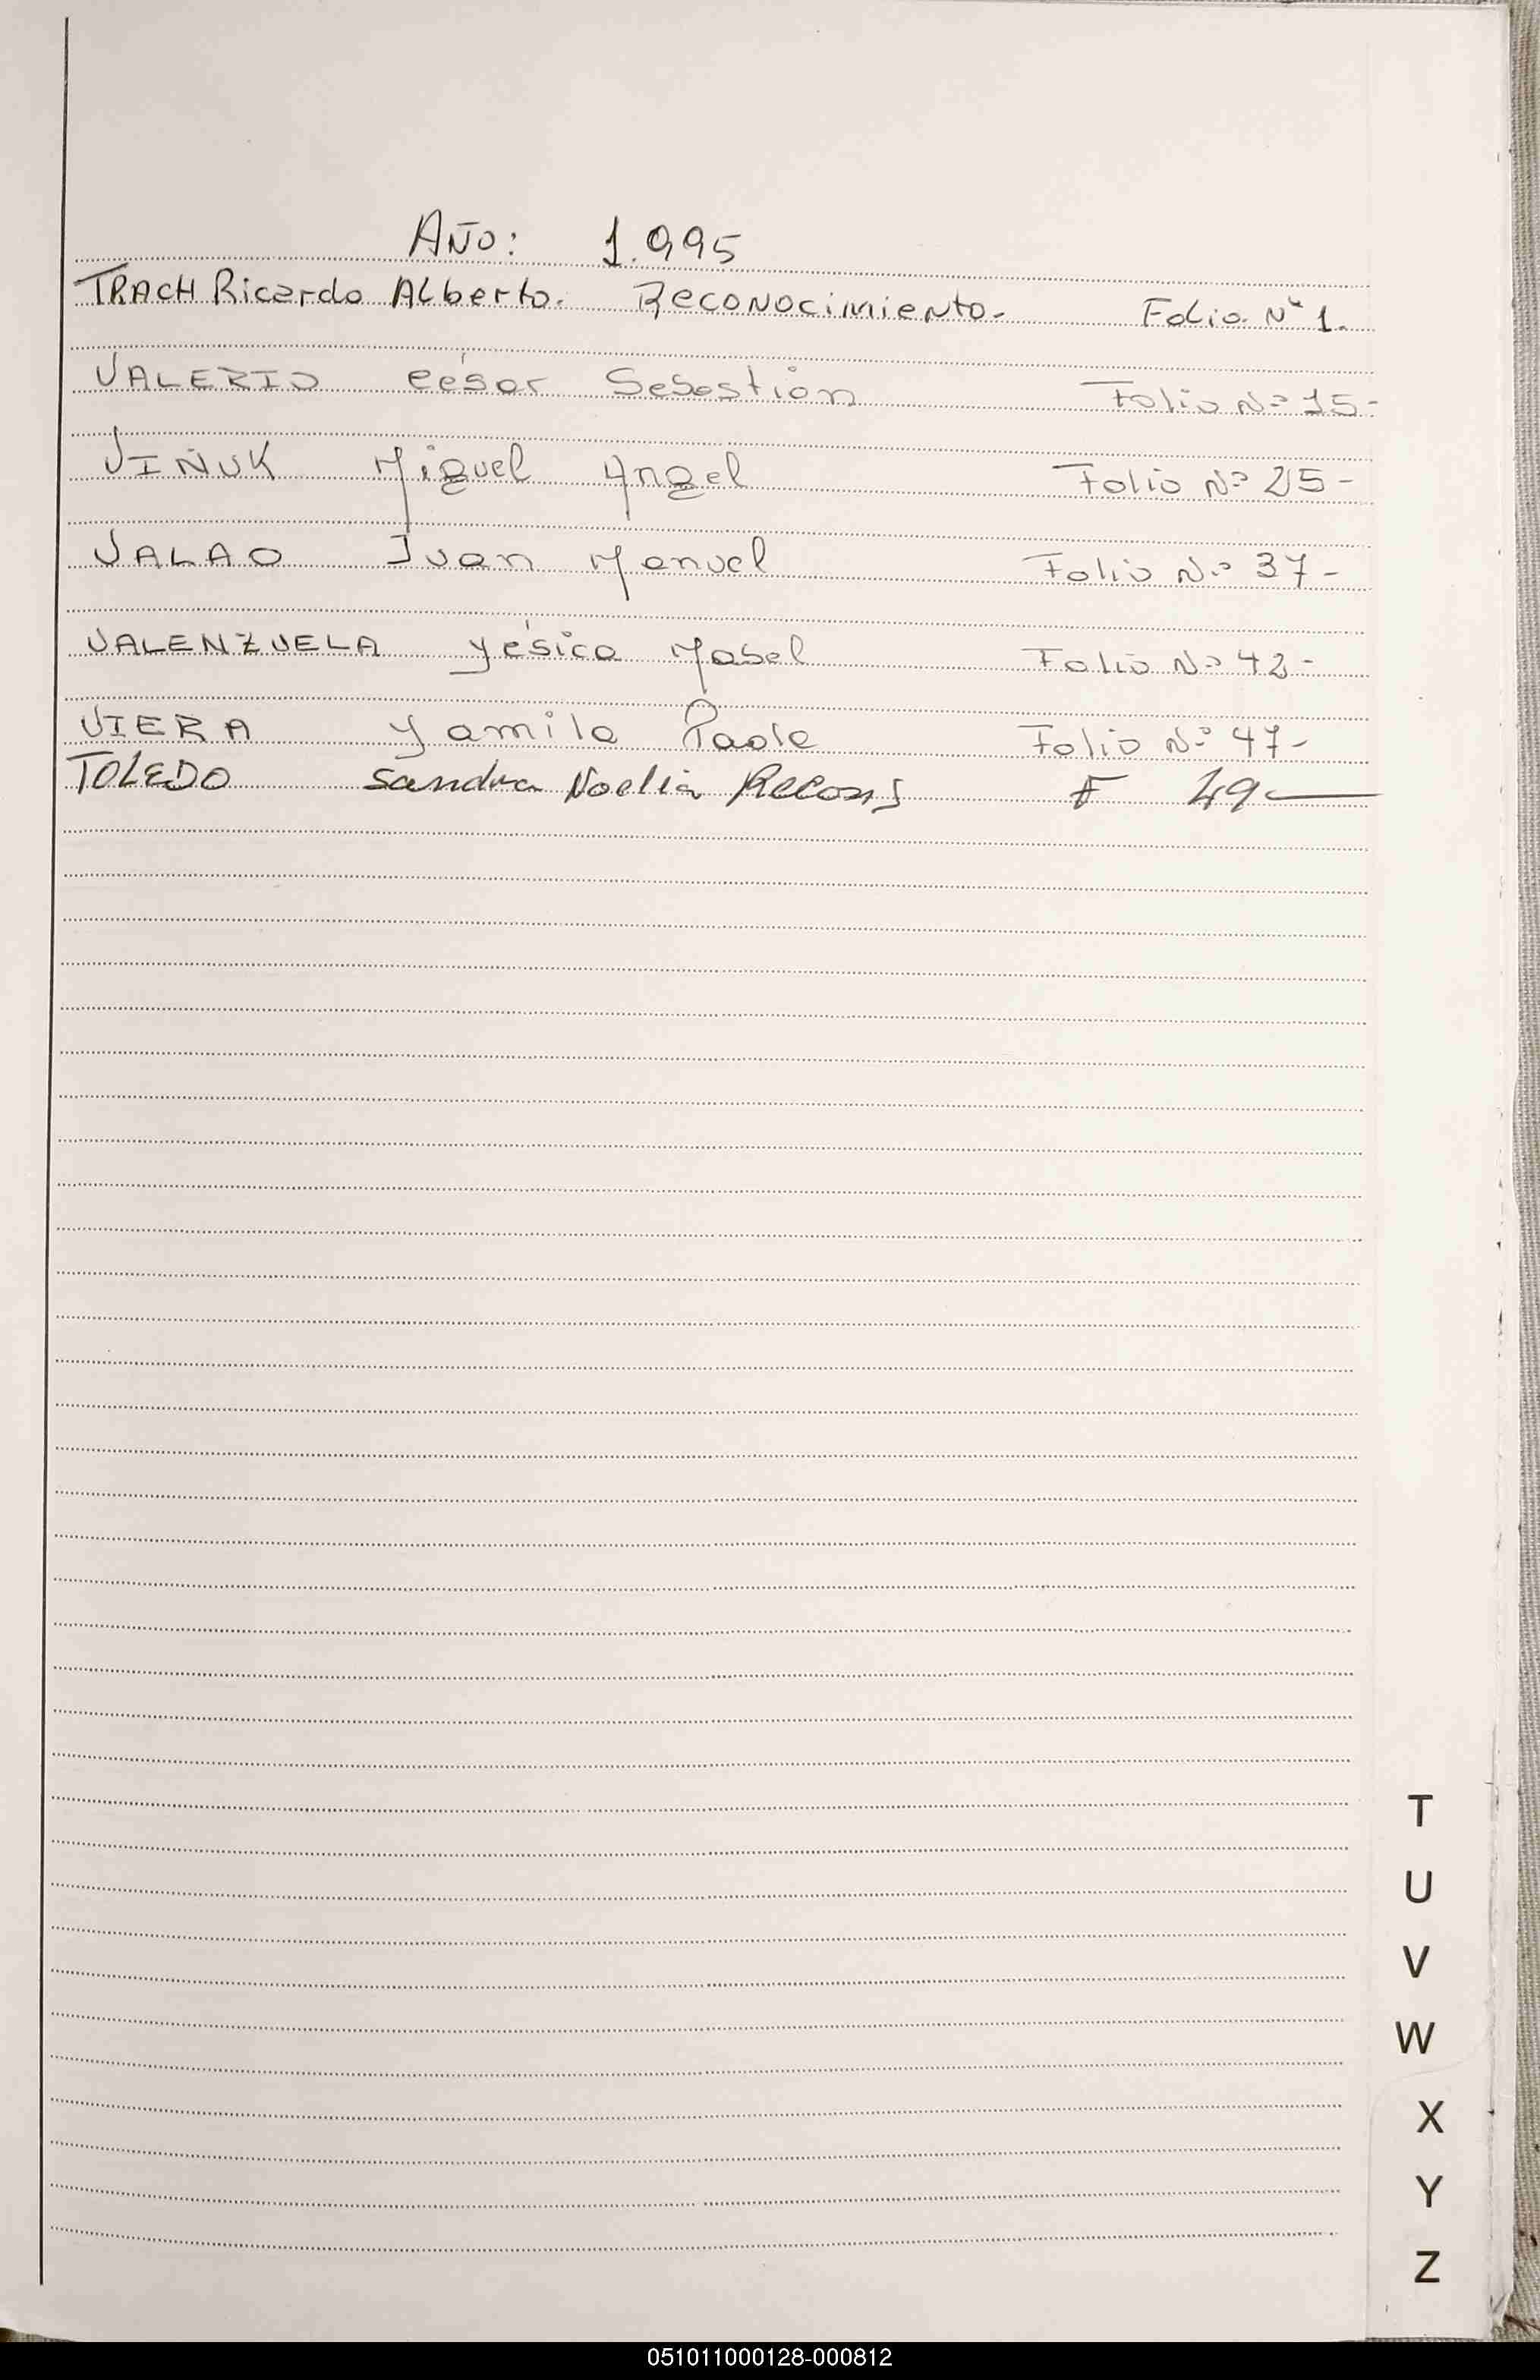 AÑO: 1.995
TRACH Ricardo ALberto. Reconocimiento. Folio N° 1.
VALERIO César Sebastián Folio N° 15-
VIÑUK Miguel Angel Folio N° 25-
VALAO Juan Manuel Folio N° 37-
VALENZUELA Yésica Mabel Folio N° 42-
VIERA Yamila Paola Folio N° 47-
TOLEDO Sandra Noelia F 49
T
U
V
W
X
Y
Z
051011000128-000812